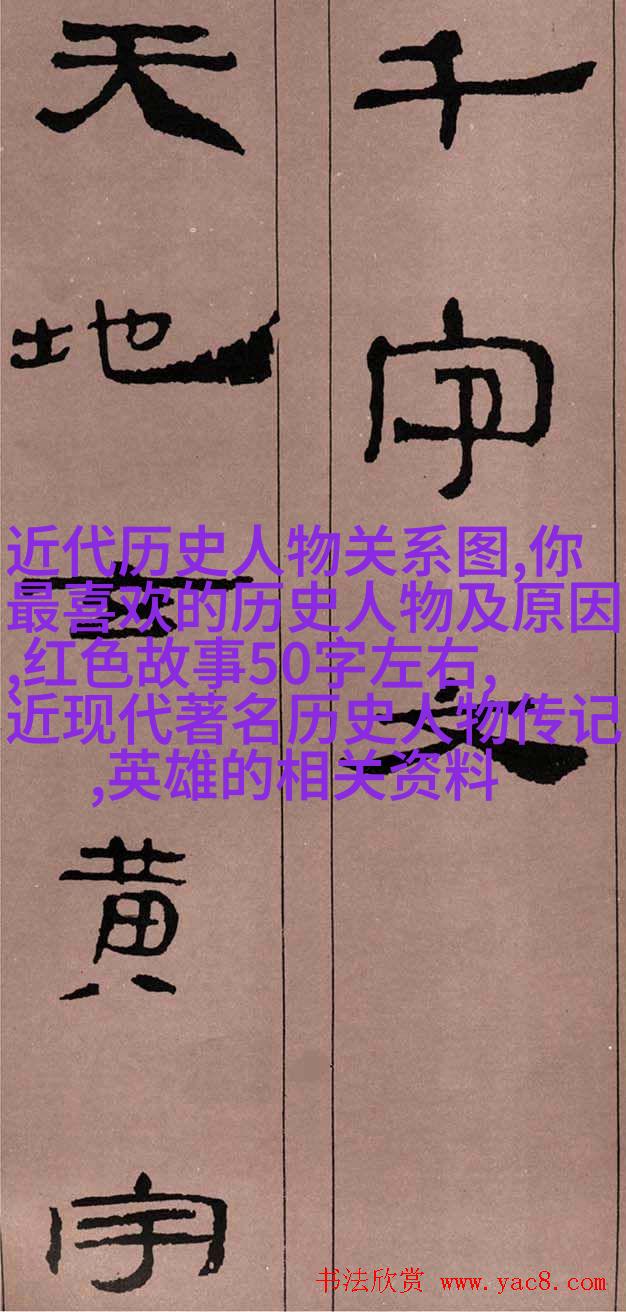 千字文
天地黄宇
近代历史人物关系图,你
最喜欢的历史人物及原因
,红色故事50字左右,
近现代著名历史人物传记
,英雄的相关资料
书法欣赏 www.yac8.com